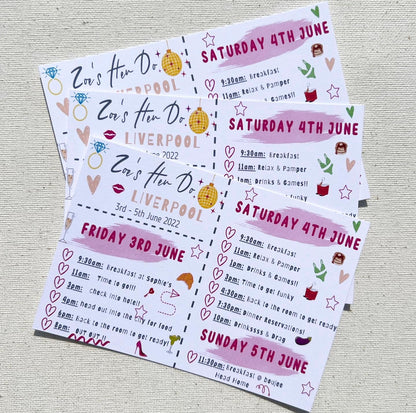 Zoe's Hen Do
SATURDAY 4TH JUNE
LIVERPOOL
9:30am: Breakfast
11am: Relax & Pamper
Games!!
Zoe's Hen Do
SATURDAY 4TH JUNE
LIVERPOOL
June 2022
9:30am: Breakfast
11am: Relax & Pamper
1pm: Drinks & Games!!
Time to get funky
Zoe's Hen Do
LIVERPOOL
3rd - 5th June 2022
FRIDAY 3RD JUNE
9:30am: Breakfast at Sophie's
11am: Time to go!!!
3pm: check into hotel!
4pm: head out into the city for food
6pm: Back to the room to get ready!
8pm: OUT OUT!!
SATURDAY 4TH JUNE
9:30am: Breakfast
11am: Relax & Pamper
1pm: Drinks & Games!
3pm: Time to get funky
4:30pm: Back to the room to get ready!
7:30pm: Dinner Reservations!
10pm: Drinkssss & Drag
SUNDAY 5TH JUNE
11:30pm: Breakfast @ boujee
Head Home